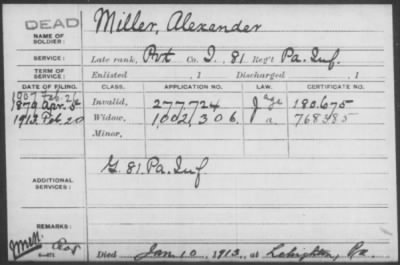 DEAD
NAME OF SOLDIER: Miller, Alexander
SERVICE: Late rank, Pvt Co. I, 81 Reg't Pa. Inf.
TERM OF SERVICE: Enlisted , 1 Discharged , 1
DATE OF FILING. CLASS. APPLICATION NO. LAW. CERTIFICATE NO.
1907 Feb. 26
1879 Apr. 5 Invalid, 277.724 age 180.675
1913 Feb. 20 Widow, 1,002,306. a 768385
Minor,
ADDITIONAL SERVICES: G. 81. Pa. Inf.
REMARKS:
6-071 Died Jan 10, 1913, at Lehighton, Pa.